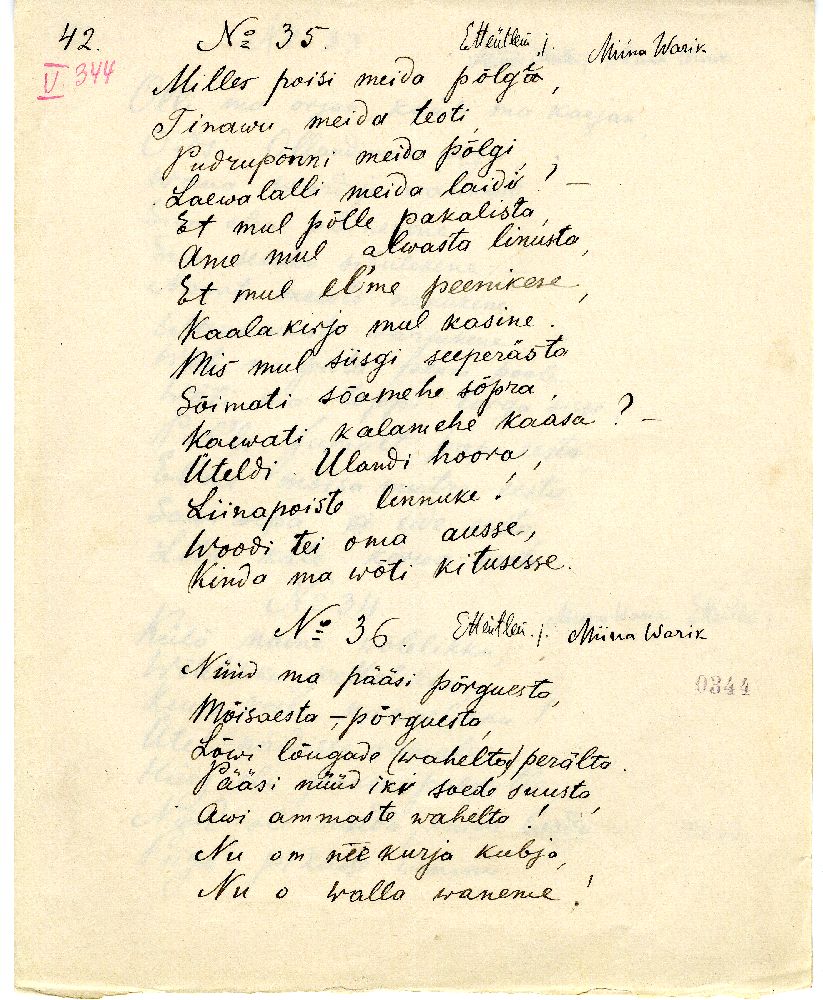 42. № 35. Etteütleja: Miina Warik
V 344
Milles poisi meida põlgva,
Tinawu meida teoti,
Pudrupõnni meida põlgi,
Laewalalli meida laidi? —
Et mul põlle pakalista,
Ame mul alwasta linusta,
Et mul el'me peenikese,
Kaala kirja mul kasine.
Mis mul siisgi seeperästa
Sõimati sõamehe sõpra,
Kaewati kalamehe kaasa? —
Üteldi Ulandi hoora,
Liinapoiste linnuke!
Woodi tei oma ausse,
Kinda ma wõti kitusesse.
№ 36. Miina Warik
Nüüd ma pääsi põrguesta,
0344
Mõisaesta – põrguesta,
Lõwi lõugade (wahelta) perälta.
Pääsi nüüd iki soede suusta,
Awi ammaste wahelta!
Nu om nee kurja kubja,
Nu o walla waneme!